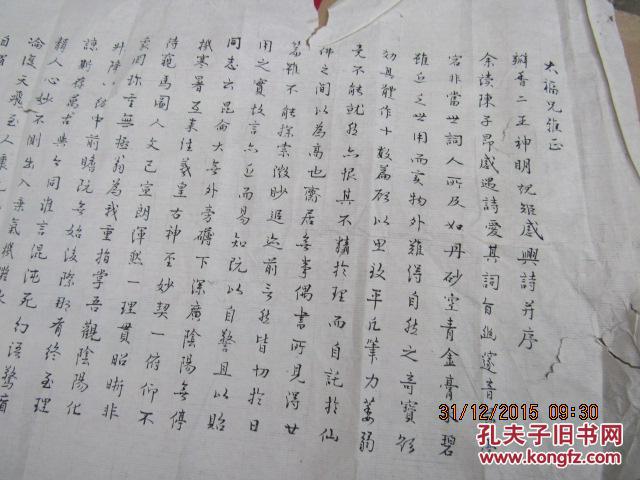 大福兄雅正
瓣香二正神明悅矩感興詩并序
余讀陳子昂感遇詩愛其詞旨幽邃音
宕非當世詞人所及如丹砂空青金膏水碧
雖近乏世用而實物外難得自然之奇寶欲
效其體作十數篇顧以思致平凡筆力萎弱
竟不能就然亦恨其不精於理而自託於仙
佛之間以為高也齋居無事偶書所見得廿
篇雖不能探索微眇追迹前言然皆切於日
用之實故言亦近而易知既以自警且以貽
同志云昆侖大無外旁礴下深廣陰陽無停
機寒暑互來往羲皇古神聖妙契一俯仰不
待窺馬圖人文已宣朗渾然一理貫昭晰非
象罔珍重無極翁為我重指掌吾觀陰陽化
升降八紘中前瞻既無始後際那有終至理
諒斯存萬古與今同誰言混沌死幻語驚盲
聾人心妙不測出入乘氣機凝冰
淪復天飛至人秉元
31/12/2015 09:30
孔夫子旧书网
www.kongfz.com